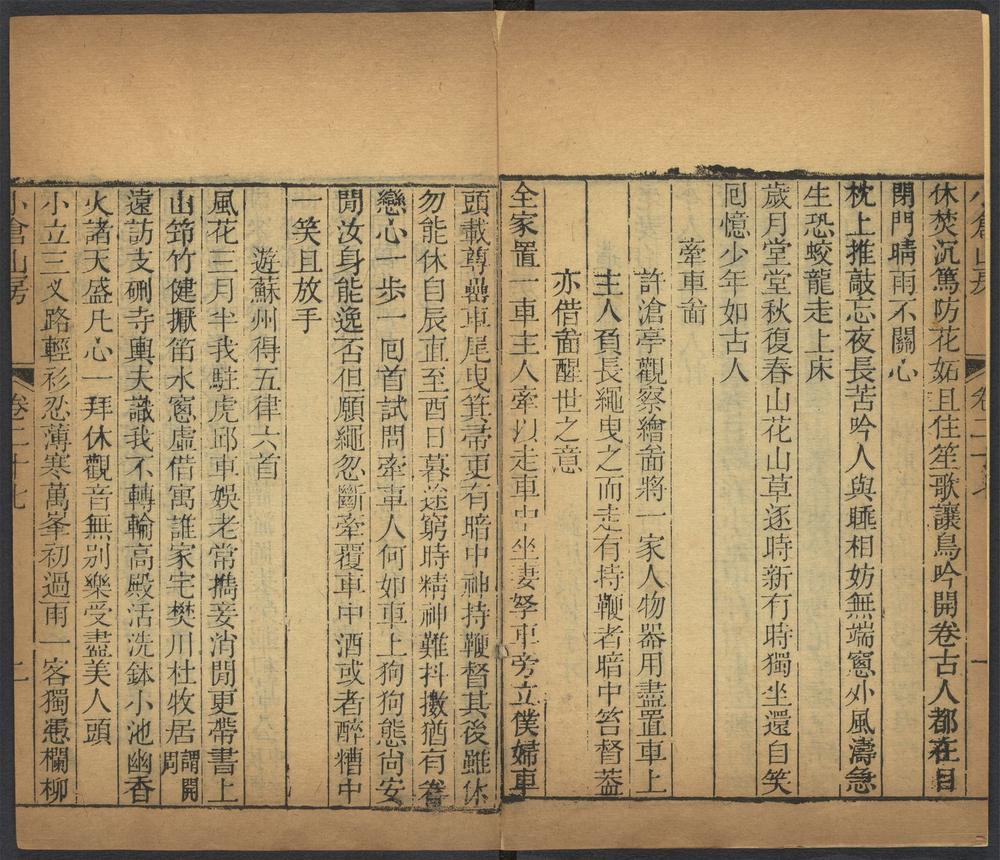 小倉山房
卷二十七
一
休焚沉篤防花妬且住笙歌讓鳥吟開卷古人都在目
閉門晴雨不關心
枕上推敲忘夜長苦吟人與睡相妨無端窻外風濤急
生恐蛟龍走上床
歲月堂堂秋復春山花山草逐時新有時獨坐還自笑
囘憶少年如古人
牽車啚
許滄亭觀察繪啚將一家人物器用盡置車上
主人負長繩曳之而走有持鞭者暗中笞督葢
亦借啚醒世之意
全家置一車主人牽以走車中坐妻孥車旁立僕婦車
頭載尊罍車尾曳箕帚更有暗中神持鞭督其後雖休
勿能休自辰直至酉日暮途窮時精神難抖擻猶有眷
戀心一步一囘首試問牽車人何如車上狗狗態尚安
閒汝身能逸否但願繩忽斷牽覆車中酒或者醉糟中
一笑且放手
遊蘇州得五律六首
風花三月半我駐虎邱車娛老常攜妾消閒更帶書上
山筇竹健撅笛水窻虛借寓誰家宅樊川杜牧居謂開周
遠訪支硎寺輿夫識我不轉輪高殿活洗鉢小池幽香
火諸天盛凡心一拜休觀音無別樂受盡美人頭
小立三叉路輕衫忍薄寒萬峯初過雨一客獨憑欄柳
小倉山房
卷二十七
二